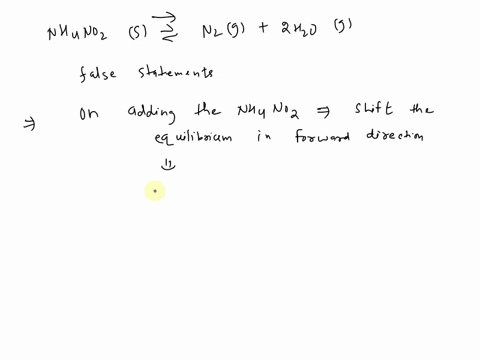 NH4NO2 (s) ⇌ N2(g) + 2H2O (g)
false statements
⇒ on adding the NH4NO2 ⇒ shift the
equilibrium in forward direction
⇓